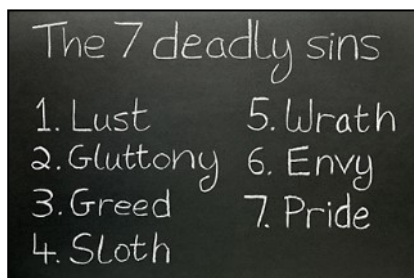 The 7 deadly sins
1. Lust
2. Gluttony
3. Greed
4. Sloth
5. Wrath
6. Envy
7. Pride